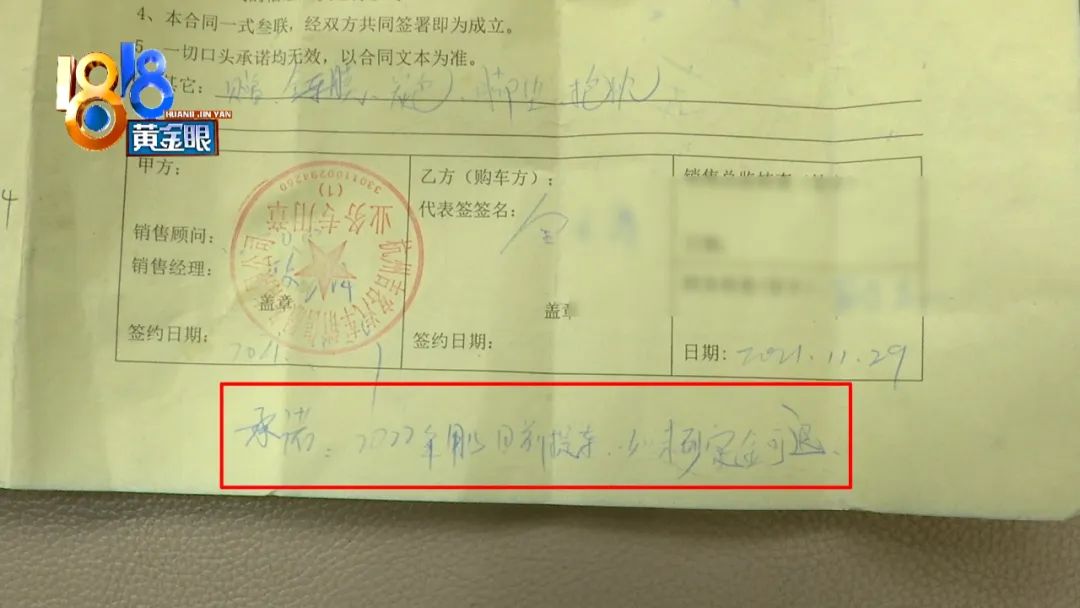 4、本合同一式叁联，经双方共同签署即为成立。
5、一切口头承诺均无效，以合同文本为准。
其它：
脚垫、抱枕
1818
HUANG JIN YAN
黄金眼
甲方：
销售顾问：
销售经理：
盖章
签约日期：
2021.
3301100294260
(1)
业务专用章
乙方（购车方）：
代表签签名：
盖章
签约日期：
日期：2021.11.29
承诺：2022年 日前提车，如未到定金可退、
4